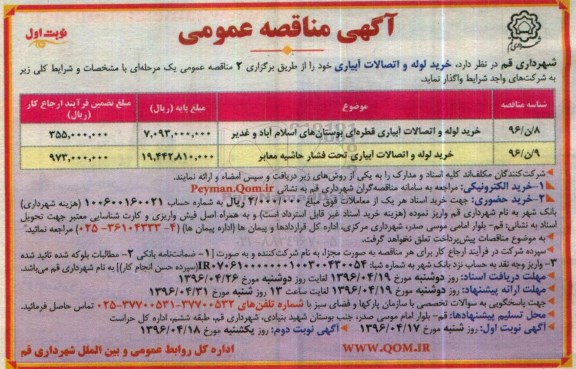 آگهی مناقصه عمومی
نوبت اول
شهرداری قم در نظر دارد، خرید لوله و اتصالات آبیاری خود را از طریق برگزاری ۲ مناقصه عمومی یک مرحله‌ای با مشخصات و شرایط کلی زیر
به شرکت‌های واجد شرایط واگذار نماید.
شناسه مناقصه موضوع مبلغ پایه (ریال) مبلغ تضمین فرآیند ارجاع کار (ریال)
۹۶/ن/۸ خرید لوله و اتصالات آبیاری قطره‌ای بوستان‌های اسلام آباد و غدیر ۷,۰۹۳,۰۰۰,۰۰۰ ۳۵۵,۰۰۰,۰۰۰
۹۶/ن/۹ خرید لوله و اتصالات آبیاری تحت فشار حاشیه معابر ۱۹,۴۴۲,۸۱۰,۰۰۰ ۹۷۳,۰۰۰,۰۰۰
شرکت‌کنندگان مکلف‌اند کلیه اسناد و مدارک را به یکی از روش‌های زیر دریافت و سپس امضاء و ارائه نمایند.
۱-خرید الکترونیکی: مراجعه به سامانه مناقصه‌گران شهرداری قم به نشانی Peyman.Qom.ir
۲-خرید حضوری: جهت خرید اسناد هر یک از معاملات فوق مبلغ ۳/۰۰۰/۰۰۰ ریال به شماره حساب ۱۰۰۶۰۰۱۶۰۰۲۱ (هزینه شهرداری)
بانک شهر به نام شهرداری قم واریز نموده (هزینه خرید اسناد غیر قابل استرداد است) و به همراه اصل فیش واریزی و کارت شناسایی معتبر جهت تحویل
اسناد به نشانی: قم- بلوار امامی موسی صدر، شهرداری مرکزی، اداره کل قراردادها و پیمان ها (اداره پیمان ها) (۴-۳۶۱۰۴۳۳۳-۰۲۵) مراجعه نمائید.
به موضوع مناقصات پیش‌پرداخت تعلق نخواهد گرفت.
سپرده شرکت در فرآیند ارجاع کار برای هر مناقصه به صورت مجزا، به نام شرکت‌کننده و به صورت [۱- ضمانت‌نامه بانکی ۲- مطالبات بلوکه شده تائید شده
۳- واریز وجه نقد به حساب نزد بانک شهر به شماره شبا: (سپرده حسن انجام کار)] به نام شهرداری قم می‌باشد.
مهلت دریافت اسناد: روز دوشنبه مورخ ۱۳۹۶/۰۴/۱۹ لغایت روز دوشنبه مورخ ۱۳۹۶/۰۴/۲۶
مهلت ارائه پیشنهاد: روز دوشنبه مورخ ۱۳۹۶/۰۴/۱۹ لغایت ساعت ۱۳ روز شنبه مورخ
جهت پاسخگویی به سوالات تخصصی با سازمان پارکها و فضای سبز با شماره تلفن‌های ۳۷۷۰۰۵۳۲-۳۷۷۰۰۵۳۱-۰۲۵ تماس حاصل فرمائید.
محل تسلیم پیشنهادها: قم- بلوار امام موسی صدر، جنب بوستان شهید بنیادی، شهرداری قم، طبقه ششم، اداره کل حراست
آگهی نوبت اول: روز شنبه مورخ ۱۳۹۶/۰۴/۱۷ آگهی نوبت دوم: روز یکشنبه مورخ ۱۳۹۶/۰۴/۱۸
WWW.QOM.IR اداره کل روابط عمومی و بین الملل شهرداری قم